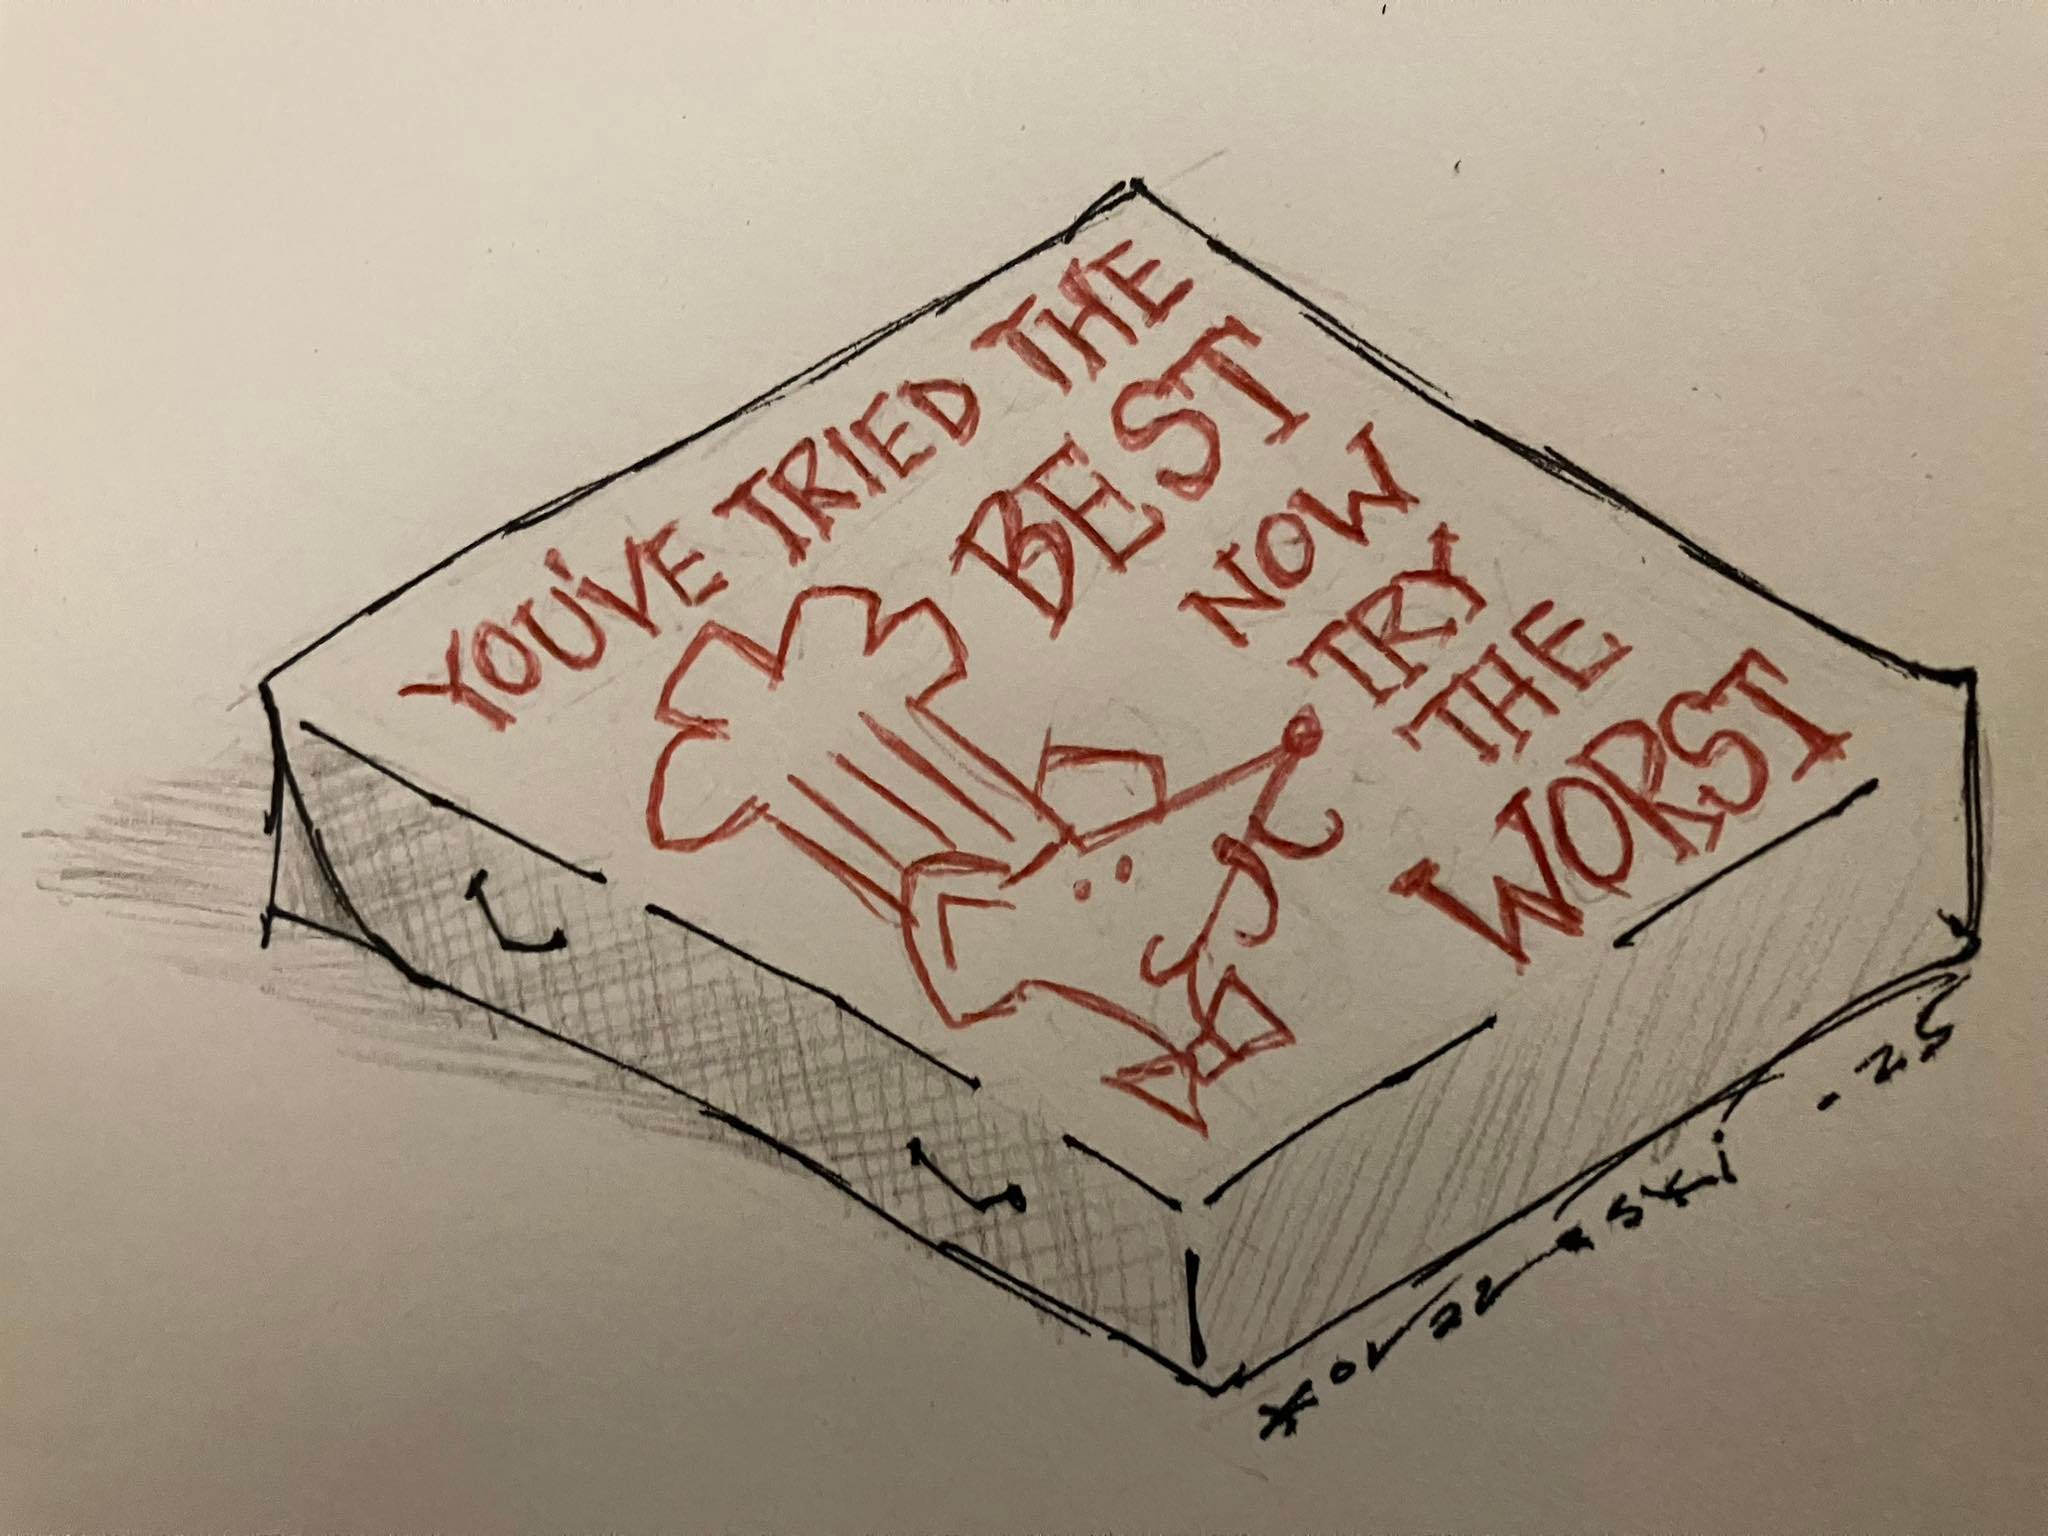 YOU'VE TRIED THE
BEST
NOW
TRY
THE
WORST